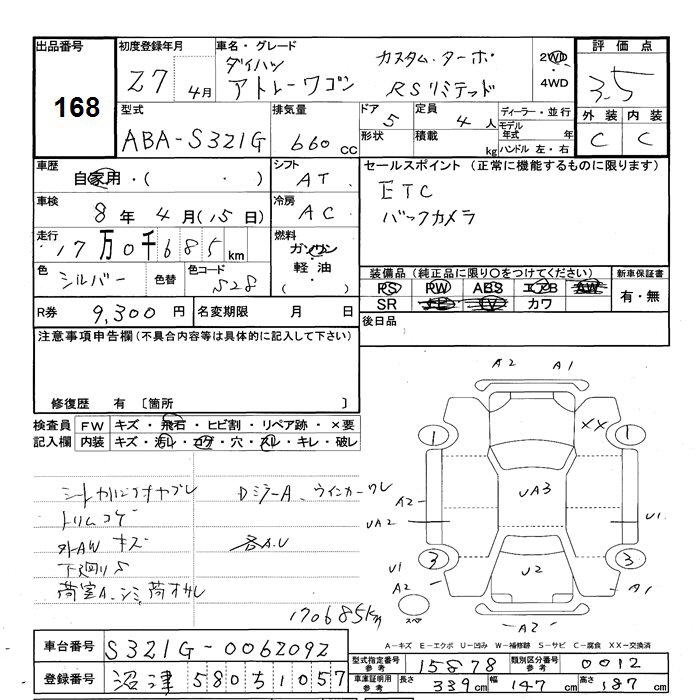 出品番号 初度登録年月 車名・グレード 評価点
168 27 4月 ダイハツ アトレーワゴン カスタム ターボ RSリミテッド 2WD・4WD 3.5
型式 排気量 ドア 定員 ディーラー・並行 外装 内装
ABA-S321G 660cc 5 4人 モデル年式 年 C C
形状 積載 kg ハンドル 左・右
車歴 シフト セールスポイント(正常に機能するものに限ります)
自家用・( ・ ) AT ETC
車検 冷房 バックカメラ
8年4月(15日) AC
走行 燃料
17万0千685km ガソリン・軽油( ・ )
色 シルバー 色替 色コード S28
装備品(純正品に限り○をつけてください) 新車保証書
PS PW ABS エアB AW 有・無
SR TV カワ
R券 9,300円 名変期限 月 日 後日品
注意事項申告欄(不具合内容等は具体的に記入して下さい)
修復歴 有 〔箇所 〕
A2 A1
検査員 FW キズ・飛石・ヒビ割・リペア跡・×要
記入欄 内装 キズ・汚レ・コゲ・穴・スレ・キレ・破レ
1 XX 1
シート DミラーA ウインカーワレ
UA3
トリムコゲ
A2 UA2 U1
外AW キズ 各A.U
3 3
下廻りS U1 A2 U2 A1
荷室A、シミ
170685km スペ A2
A-キズ E-エクボ U-凹み W-補修跡 S-サビ C-腐食 XX-交換済
車台番号 S321G-0062092
型式指定番号 参考 15878 類別区分番号 参考 0012
登録番号 沼津 580 ち 1057
車庫証明用 参考 長さ 339cm 幅 147cm 高さ 187cm